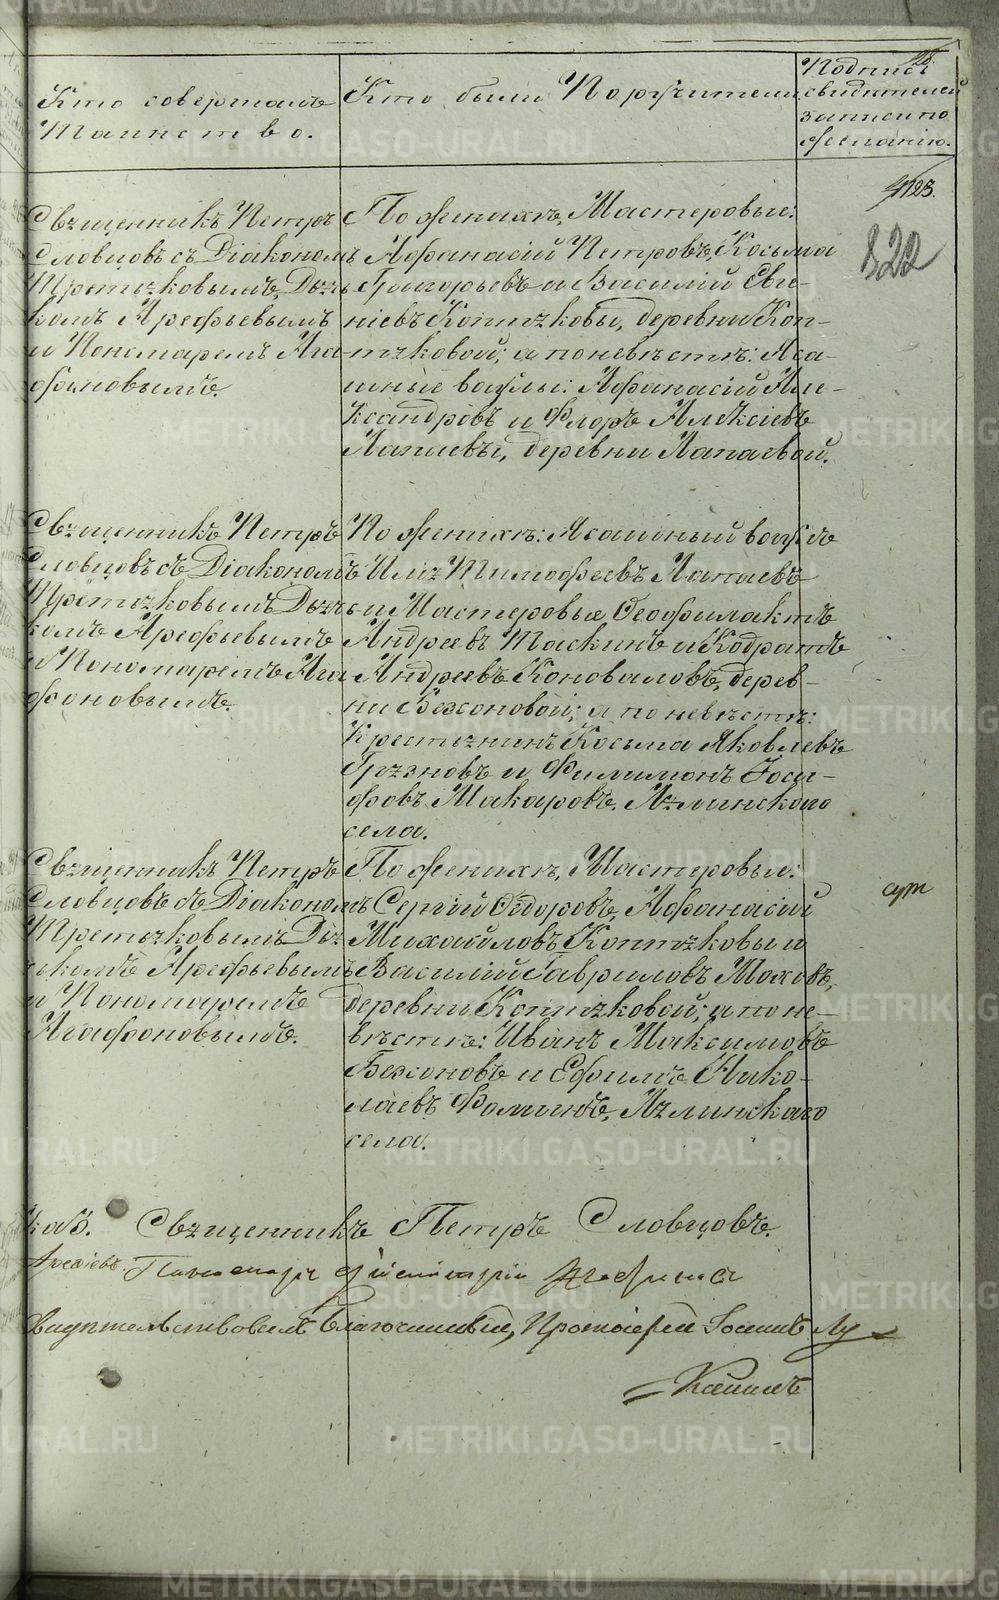 Кто совершалъ
Таинство.
Кто были Поручители
Подпись
свидѣтелей
записи по
желанію.
1123.
822
Священникъ Петръ
Словцовъ съ Діакономъ
Третьяковымъ, Дьяч-
комъ Арефьевымъ
и Пономаремъ Ага-
фоновымъ.
По женихѣ, Мастеровые:
Афанасій Петровъ, Косьма
Григорьевъ и Василій Евге-
ніевъ Коптяковы, деревни Коп-
тяковой; а по невѣстѣ: Яса-
шные вогулы: Афанасій Але-
ксандровъ и Флоръ Алексіевъ
Лапаевы, деревни Лапаевой.
Священникъ Петръ
Словцовъ съ Діакономъ
Третьяковымъ Дьяч-
комъ Арефьевымъ
и Пономаремъ Ага
фоновымъ.
По женихѣ: Ясашный вогулъ
Илія Тимофеевъ Лапаевъ
и Мастеровые Феофилактъ
Андреевъ Таскинъ и Кодратъ
Андреевъ Коноваловъ, дерев-
ни Безсоновой; а по невѣстѣ:
Крестьянинъ Косьма Яковлевъ
Грязновъ и Филимонъ Іоси-
фовъ Макаровъ, Лялинского
села.
Священникъ Петръ
Словцовъ съ Діакономъ
Третьяковымъ Дья
чкомъ Арефьевымъ
и Пономаремъ
Агафоновымъ.
По женихѣ, Мастеровыя:
Сергій Федоровъ, Афанасій
Михайловъ Коптяковы и
Василій Гавриловъ Маховъ,
деревни Коптяковой; а по не-
вѣстѣ: Иванъ Максимовъ
Безсоновъ и Ефимъ Нико-
лаевъ Фоминъ, Лялинскаго
села.
Священникъ Петръ Словцовъ.
Пономарь Димитрій Агафоновъ
Свидѣтельствовалъ Благочинный, Протоіерей Іоаннъ Лу-
- канинъ
METRIKI.GASO-URAL.RU